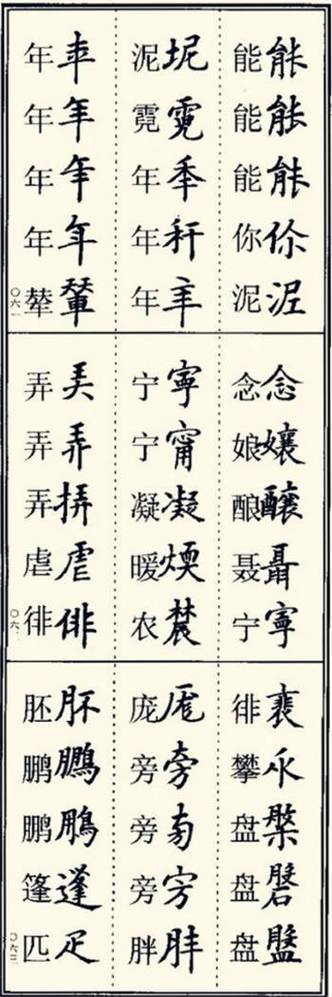 能䏻
能能
能能
你伱
泥
泥坭
霓霓
年秊
年
年
年
年年
年
年年
辇輦
〇六一
念念
娘孃
酿釀
聂聶
宁寧
宁寧
宁甯
凝凝
暖煗
农農
弄
弄弄
弄挊
虐
徘俳
〇六
徘裵
攀
盘槃
盘磐
盘盤
庞
旁旁
旁
旁
胖胖
胚
鹏鵬
鹏
篷蓬
匹
〇六三